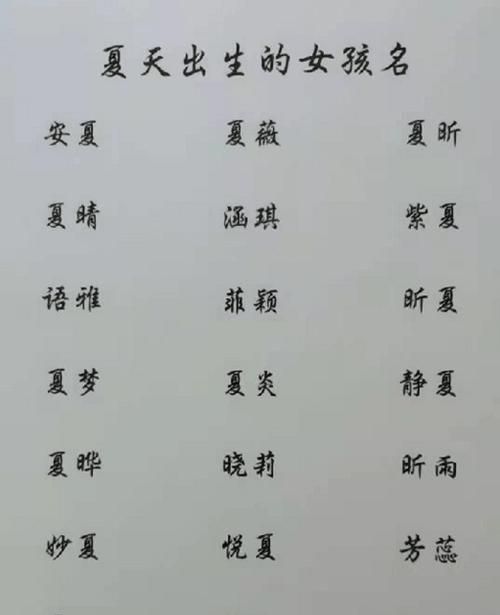 夏天出生的女孩名
安夏 夏薇 夏昕
夏晴 涵琪 紫夏
语雅 菲颖 昕夏
夏梦 夏炎 静夏
夏晔 晓莉 昕雨
妙夏 悦夏 芳蕊